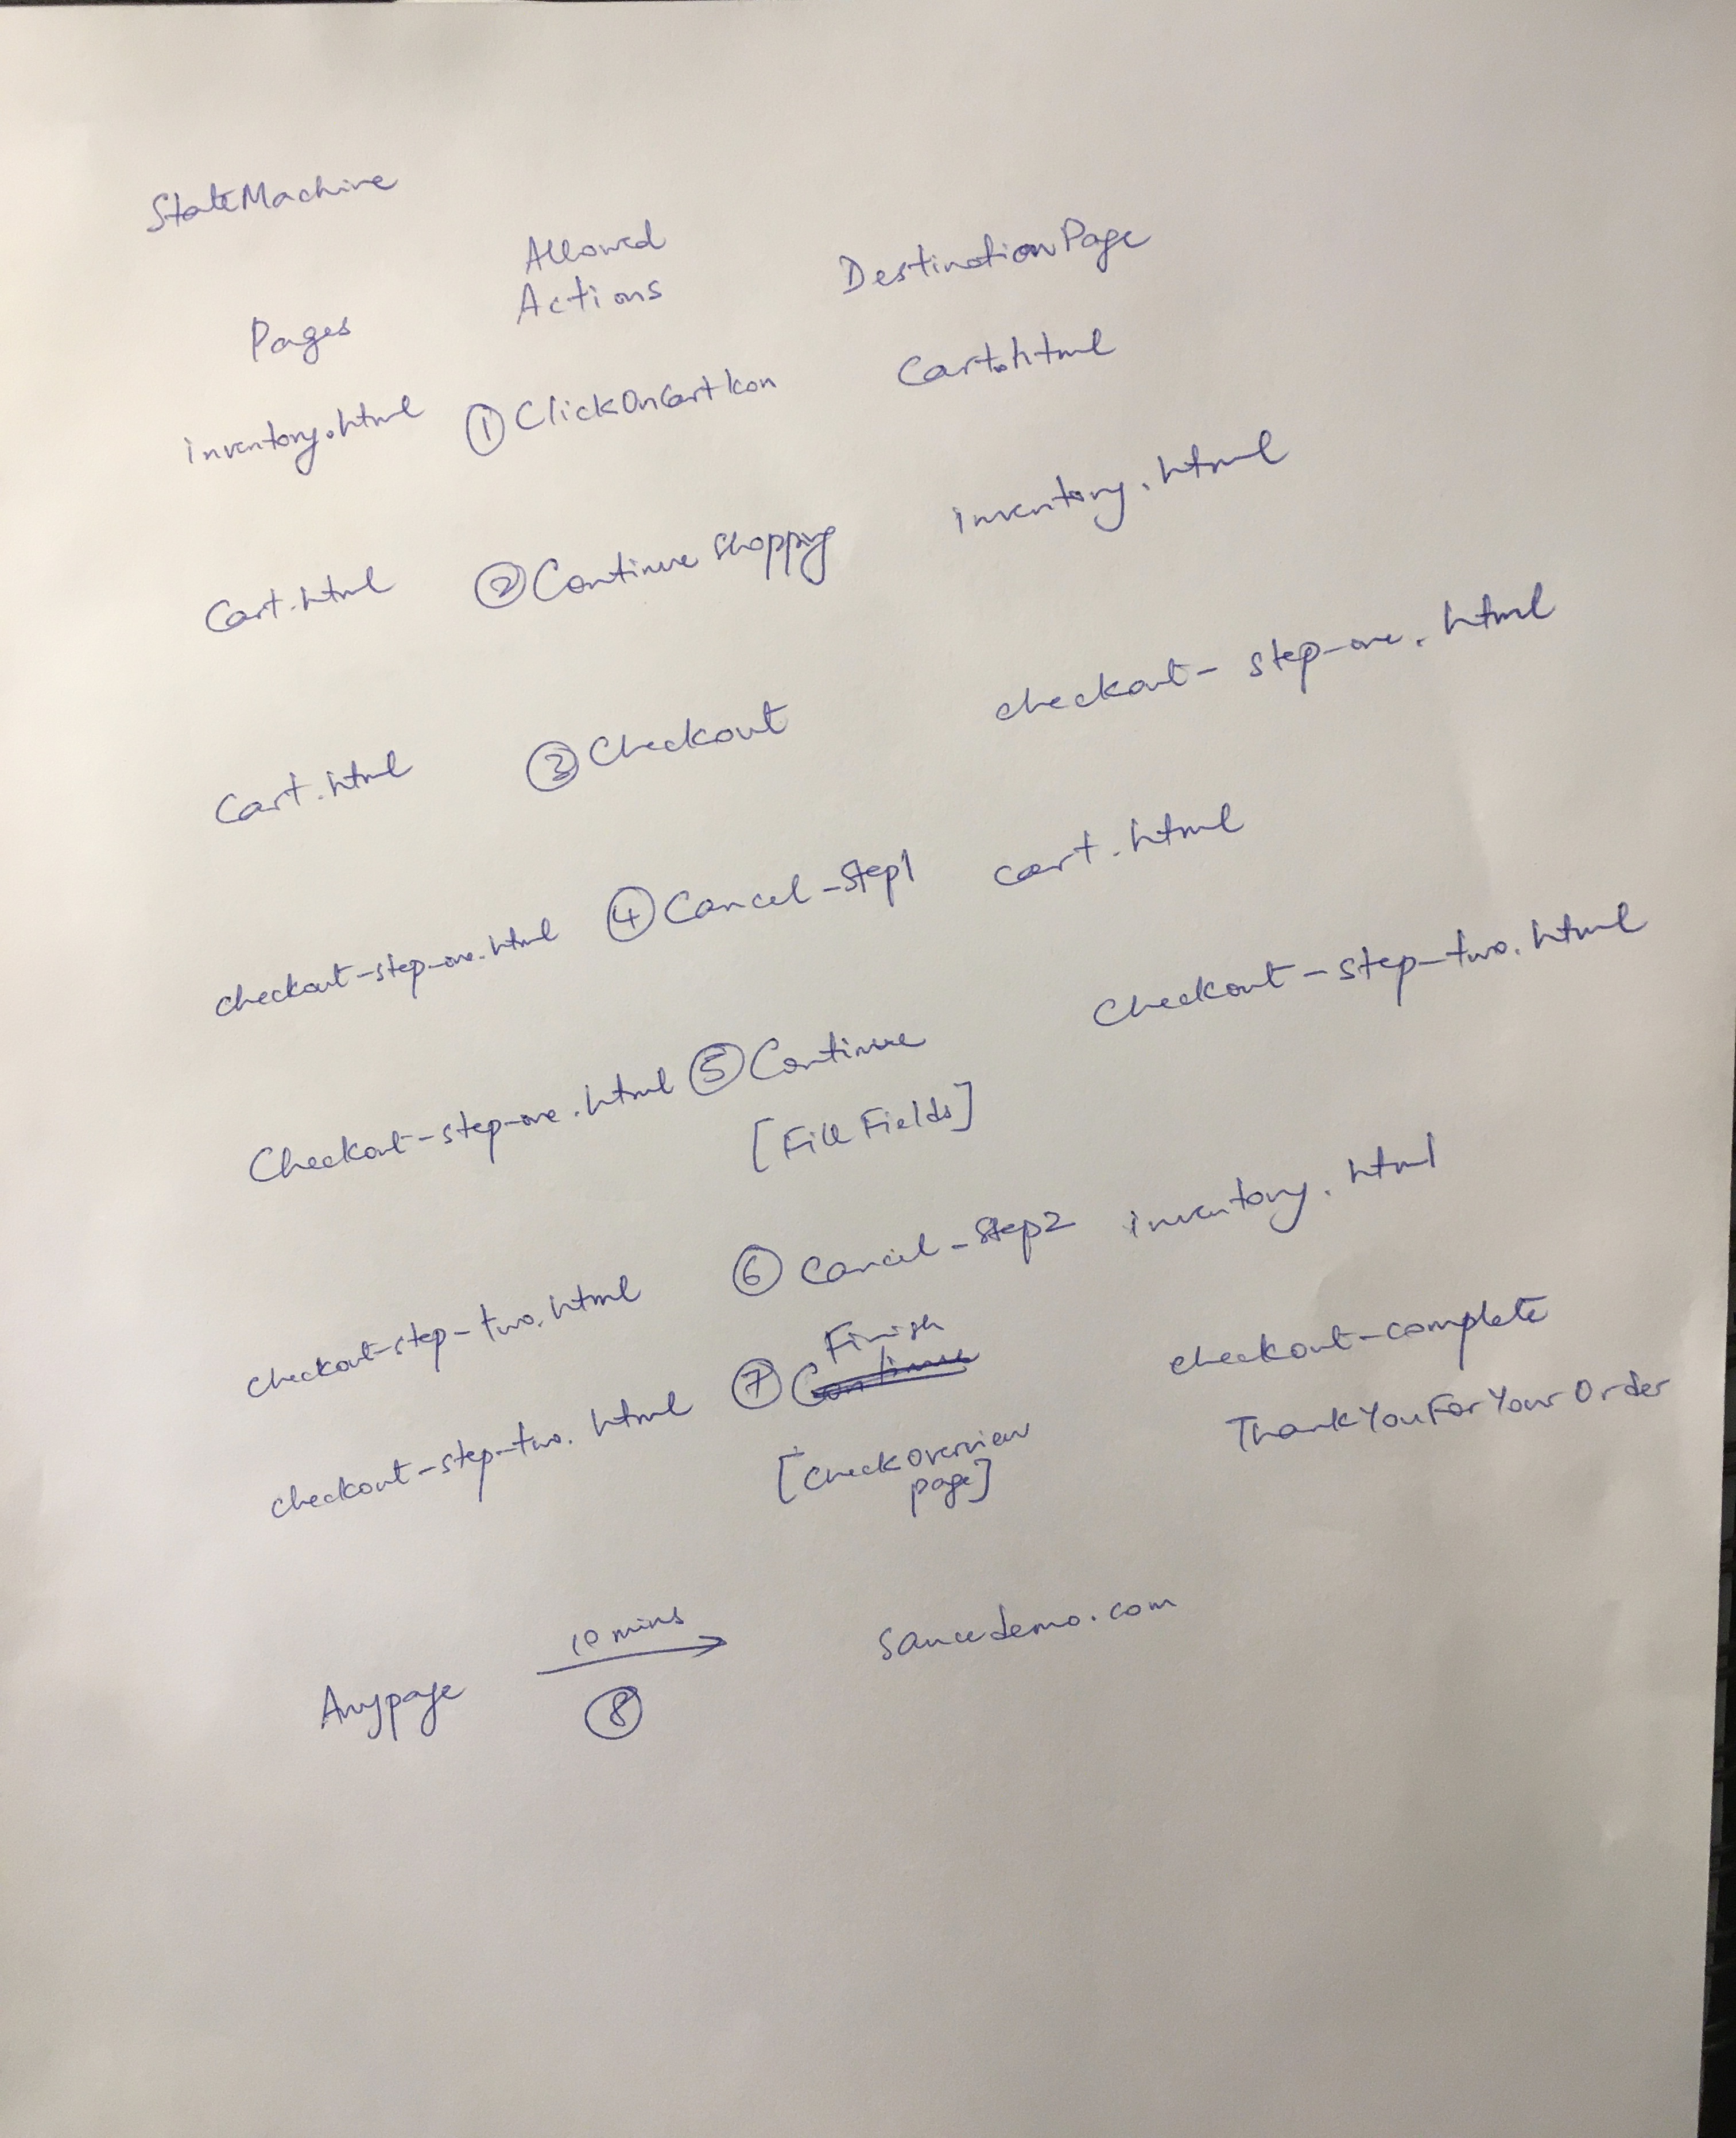 StateMachine
Pages Allowed Actions DestinationPage
inventory.html ① ClickOnCartIcon Cart.html
Cart.html ② Continue Shopping inventory.html
Cart.html ③ Checkout checkout-step-one.html
checkout-step-one.html ④ Cancel-Step1 cart.html
Checkout-step-one.html ⑤ Continue Checkout-step-two.html
[Fill Fields]
checkout-step-two.html ⑥ Cancel-Step2 inventory.html
Finish
checkout-step-two.html ⑦ Continue checkout-complete
[Check overview ThankYouForYourOrder
page]
Anypage 10 mins saucedemo.com
⑧